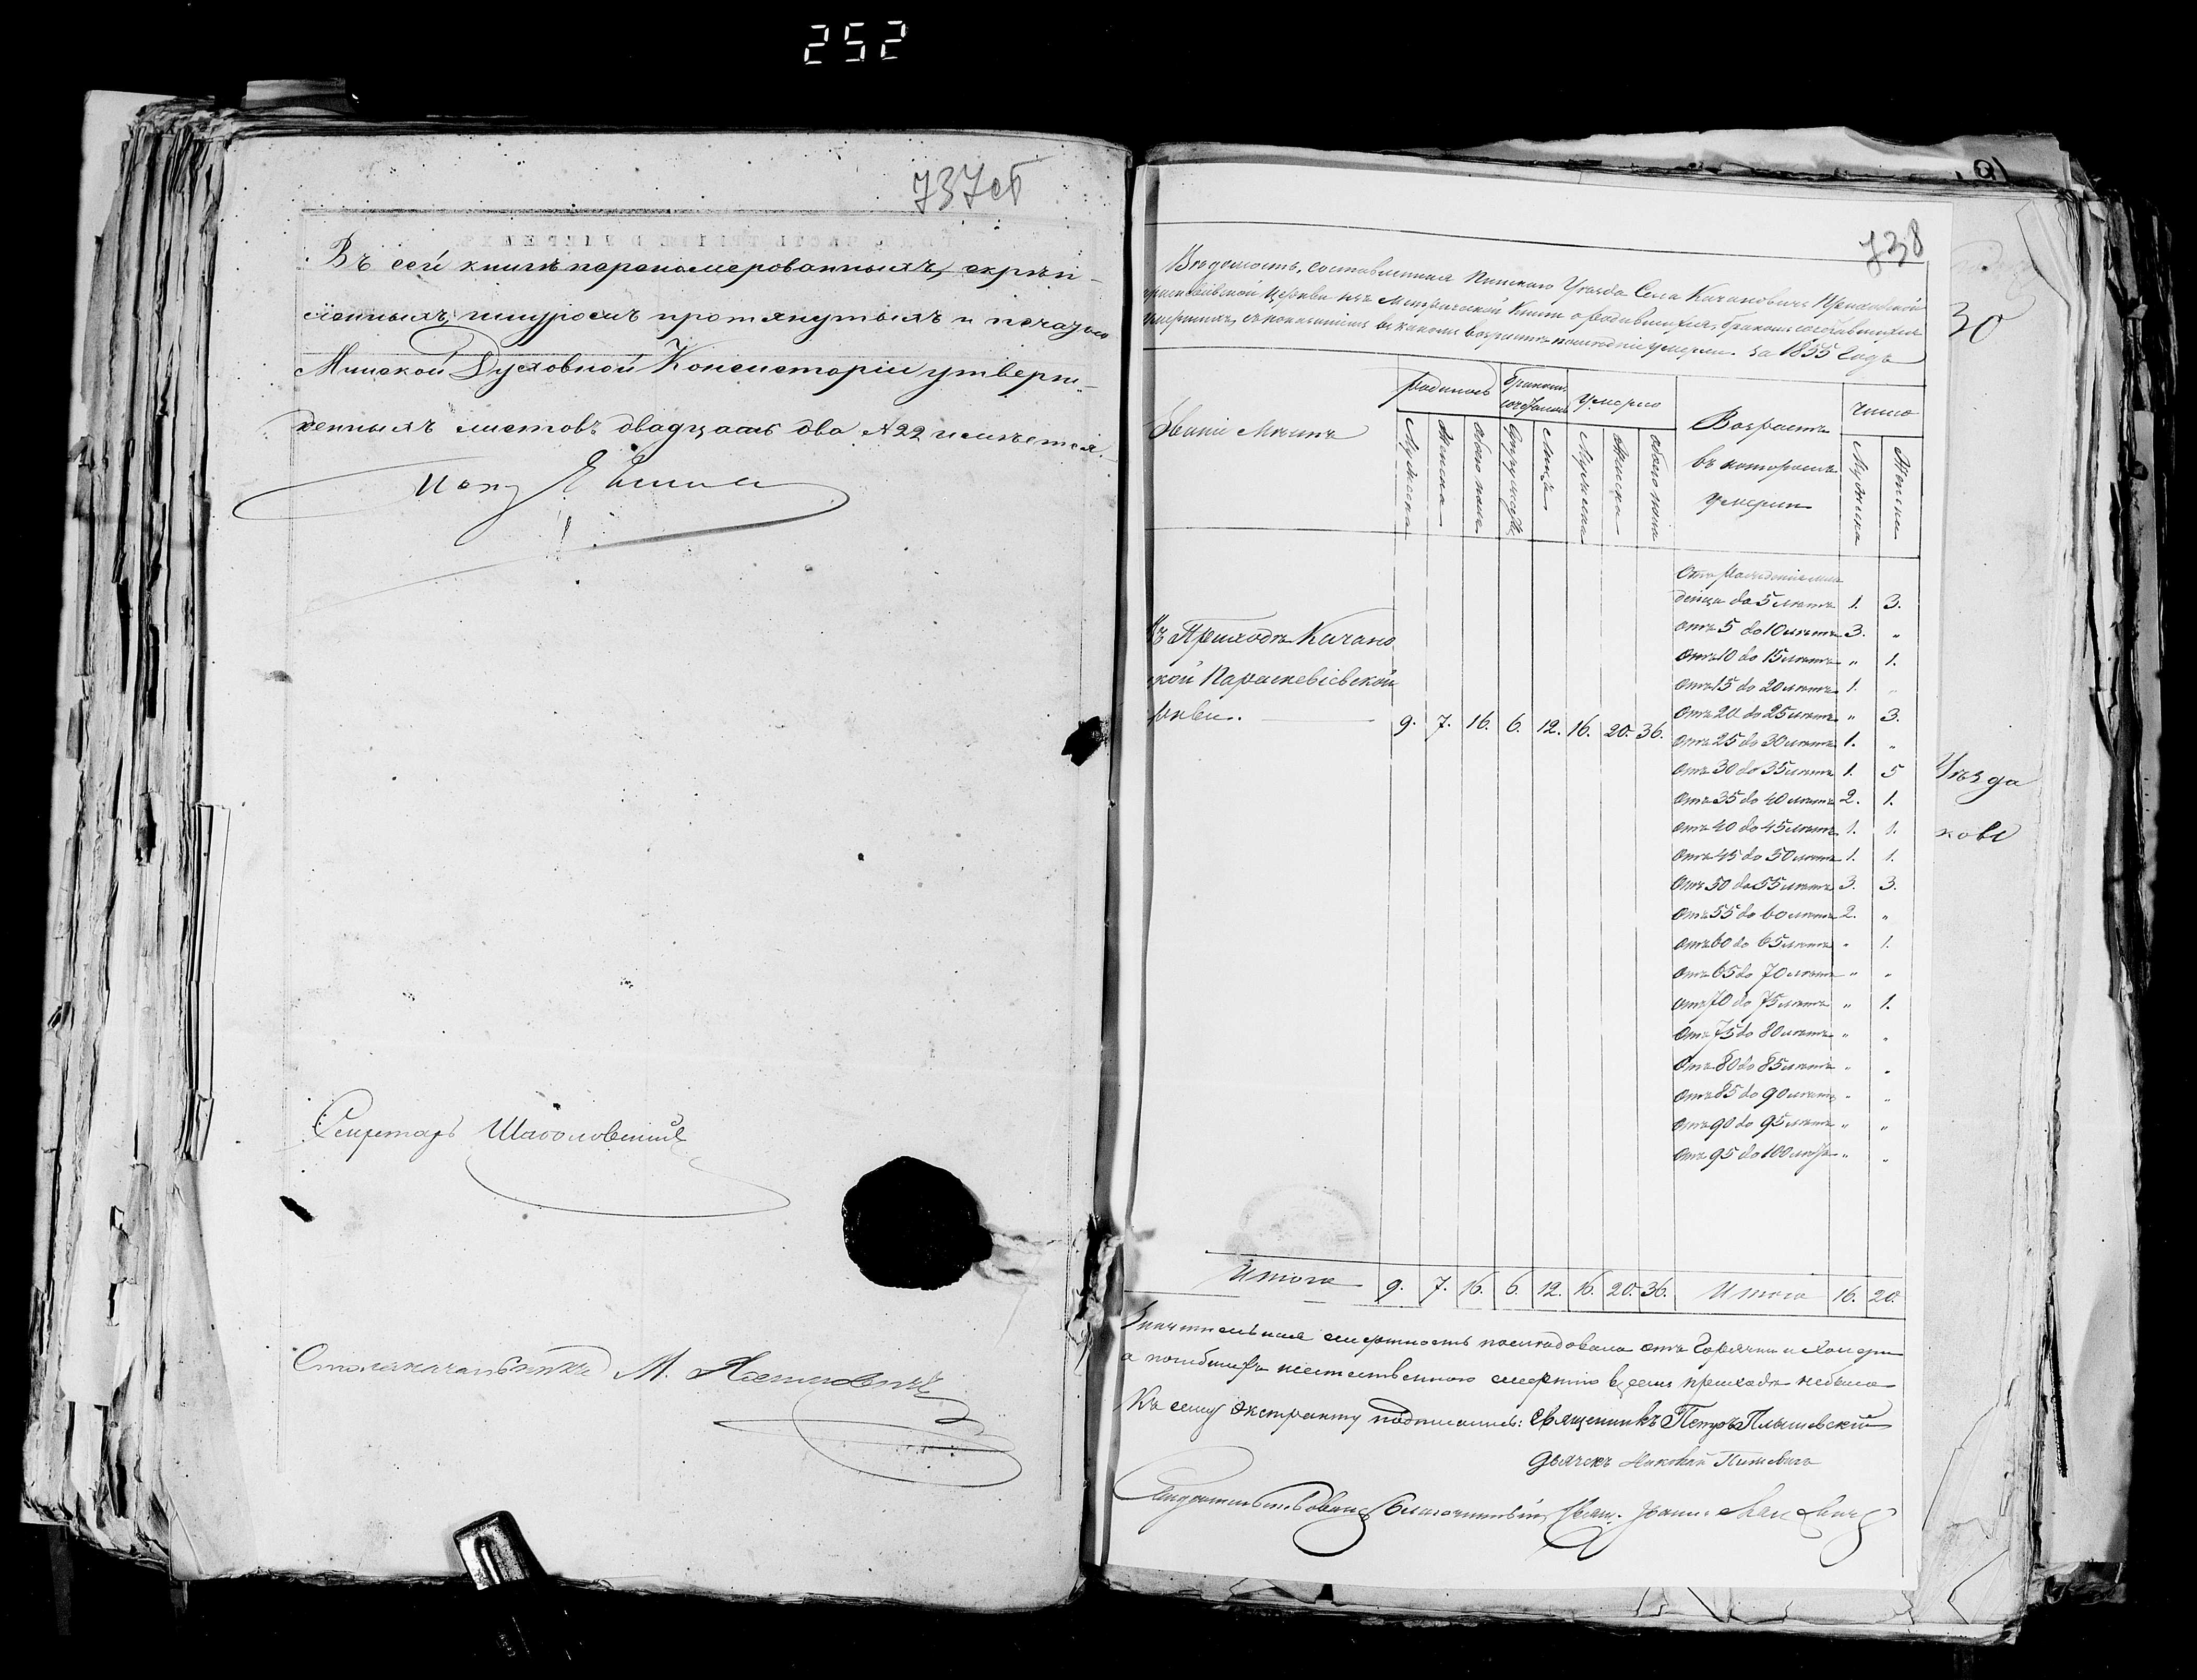 252
737об
Въ сей книгѣ перенумерованныхъ, скрѣп-
ленныхъ, шнуромъ протянутыхъ и печатью
Минской Духовной Консисторіи утверж-
денныхъ листовъ двадцать два №22 имѣется.
Секретарь
Столоначальникъ М.
738
30
Вѣдомость, составленная Пинскаго Уѣзда Села Качановичъ Приходской
Церкви изъ Метрической Книги о родившихся, бракомъ сочетавшихся
умершихъ, съ показаніемъ въ какомъ возрастѣ послѣдніе умерли. за 1855 Годъ
Званіе Мѣстъ
родилось
бракомъ сочеталось
умерло
Возрастъ
въ которомъ
умерли
число
Мужеска
Женска
обоего пола
Супружествъ
Лицъ
Мужеска
Женска
обоего пола
Мужеска
Женска
Въ Приходѣ Качано
кой Параскевіевской
9. 7. 16. 6. 12. 16. 20. 36.
Отъ рожденія мла
денца до 5 лѣтъ 1. 3.
отъ 5 до 10 лѣтъ 3. „
отъ 10 до 15 лѣтъ „ 1.
отъ 15 до 20 лѣтъ 1. „
отъ 20 до 25 лѣтъ „ 3.
отъ 25 до 30 лѣтъ 1. „
отъ 30 до 35 лѣтъ 1. 5
отъ 35 до 40 лѣтъ 2. 1.
отъ 40 до 45 лѣтъ 1. 1.
отъ 45 до 50 лѣтъ 1. 1.
отъ 50 до 55 лѣтъ 3. 3.
отъ 55 до 60 лѣтъ 2. „
отъ 60 до 65 лѣтъ „ 1.
отъ 65 до 70 лѣтъ „ „
отъ 70 до 75 лѣтъ „ 1.
отъ 75 до 80 лѣтъ „ „
отъ 80 до 85 лѣтъ „ „
отъ 85 до 90 лѣтъ „ „
отъ 90 до 95 лѣтъ „ „
отъ 95 до 100 лѣтъ „ „
Итого 9. 7. 16. 6. 12. 16. 20. 36. Итого 16. 20.
Значительная смертность послѣдовала отъ Горячки и Холеры
а погибшихъ неестественною смертію въ семъ приходѣ небыло
Къ сему экстракту подписались: Священникъ Петръ Плышевскій
дьячекъ Николай
Свидѣтельствовалъ Благочинный Свящ. Іоаннъ
Уѣзда
ковѣ